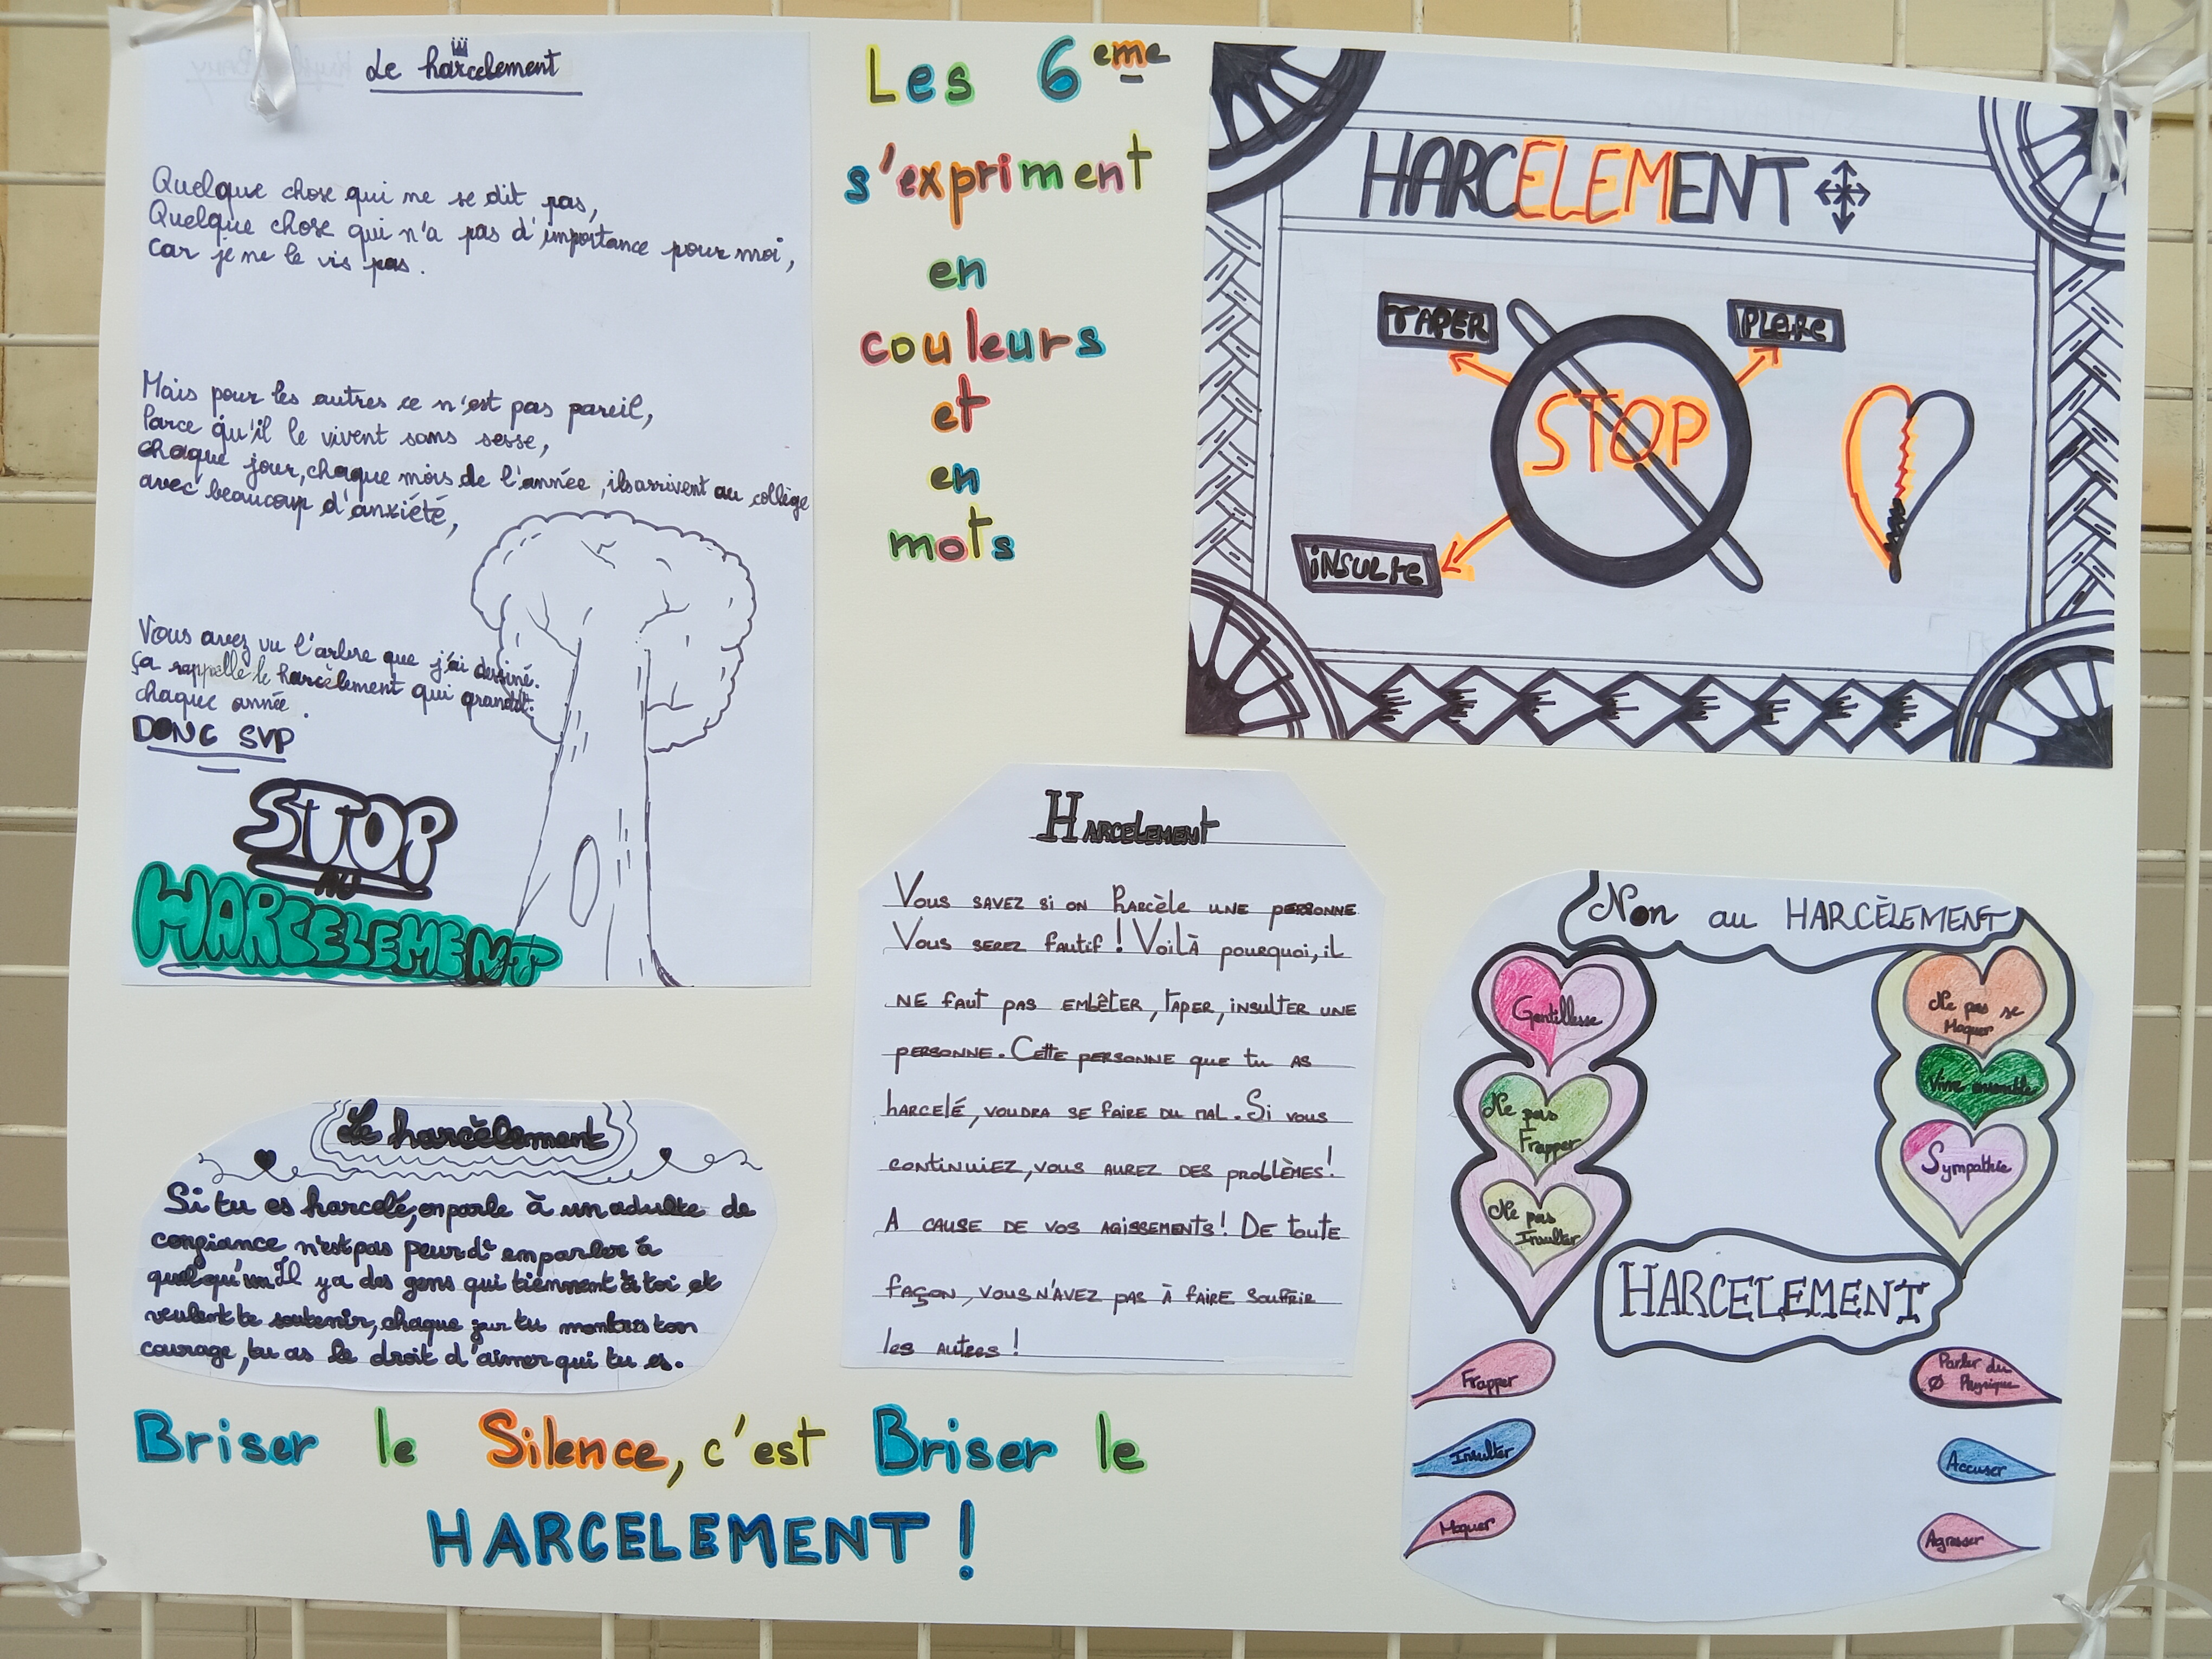 Le harcelement
Quelque chose qui ne se dit pas,
Quelque chose qui n'a pas d'importance pour moi,
car je ne le vis pas.
Mais pour les autres ce n'est pas pareil,
Parce qu'il le vivent sans sesse,
chaque jour, chaque mois de l'année, ils arrivent au collège
avec beaucoup d'anxiété,
Vous avez vu l'arbre que j'ai dessiné.
ça rappelle le harcèlement qui grandit
chaque année.
DONC SVP
STOP
AU
HARCELEMENT
Les 6eme
s'expriment
en
couleurs
et
en
mots
HARCELEMENT
TAPER
PLEURE
STOP
INSULTE
HARCELEMENT
Vous savez si on harcèle une personne
Vous serez fautif ! Voilà pourquoi, il
ne faut pas embêter, taper, insulter une
personne. Cette personne que tu as
harcelé, voudra se faire du mal. Si vous
continuiez, vous aurez des problèmes !
A cause de vos agissements ! De toute
façon, vous n'avez pas à faire soufrir
les autres !
Non au HARCÈLEMENT
Gentillesse
Ne pas
Frapper
Ne pas
Insulter
Ne pas se
Moquer
Vivre ensemble
Sympathie
HARCELEMENT
Frapper
Insulter
Moquer
Parler du
Ø Physique
Accuser
Agresser
Le harcèlement
Si tu es harcelé, en parle à un adulte de
confiance n'est pas peur d' en parler à
quelqu'un Il y a des gens qui tiennent à toi et
veulent te soutenir, chaque jour tu montres ton
courage, tu as le droit d'aimer qui tu es.
Briser le Silence, c'est Briser le
HARCELEMENT !